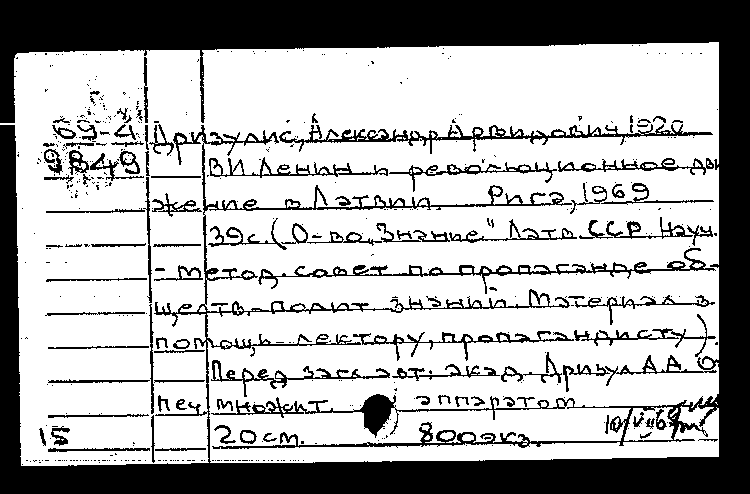 69-4 Дризулис, Александр Арвидович, 1920
9849 В.И. Ленин и революционное дви
жение в Латвии. Рига, 1969
39с. (О-во "Знание" Латв. ССР. Науч.
-метод. совет по пропаганде об-
ществ.-полит. знаний. Материал в
помощь лектору, пропагандисту).
Перед загл. авт.: акад. Дризул А.А. О
печ. множит. аппаратом.
15 20 см. 800 экз. 10/VII 69